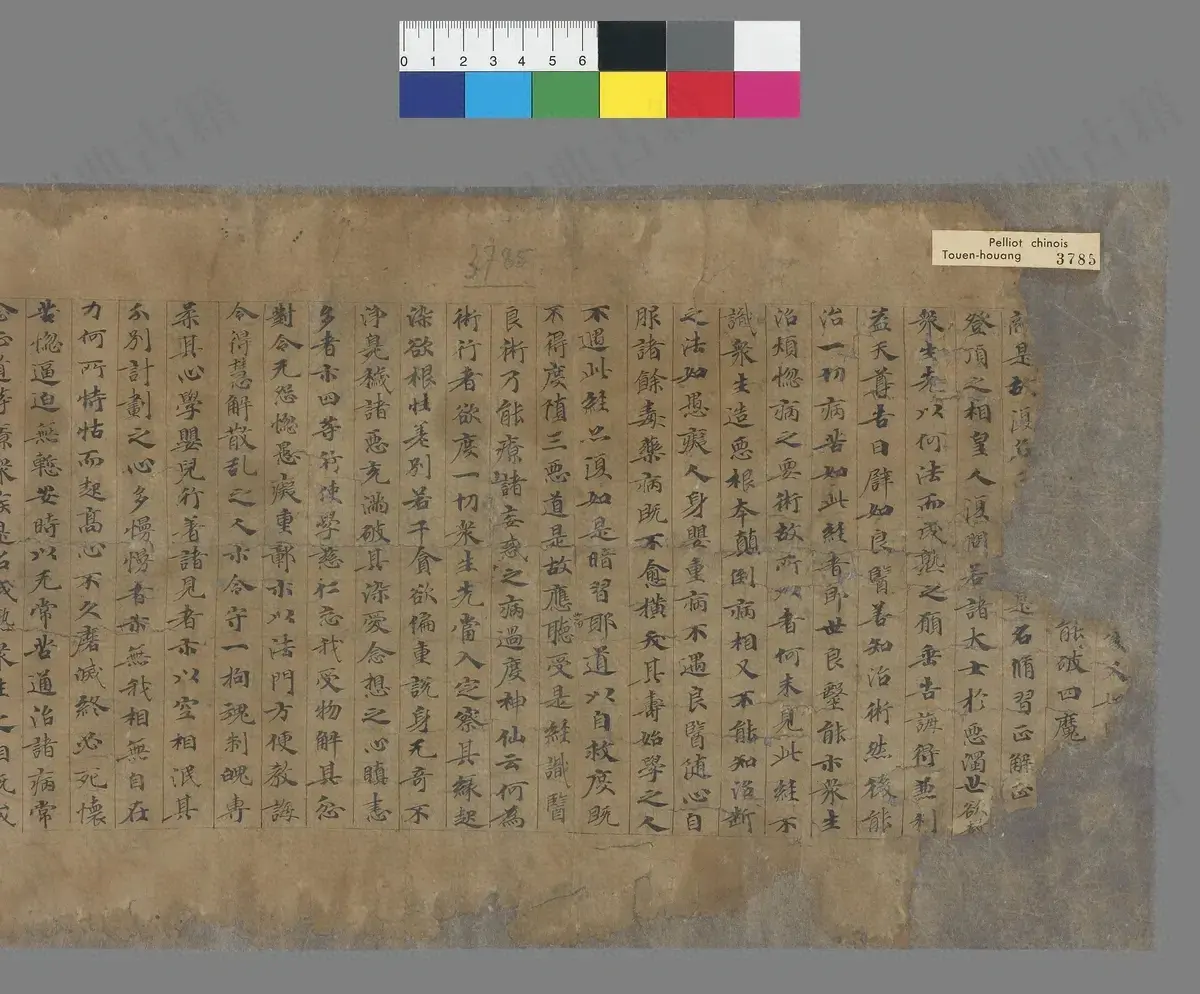 0 1 2 3 4 5 6
Pelliot chinois
Touen-houang 3785
3785
能破四魔
是名脩習正解正
登頂之相皇人復問若諸大士於惡濁世欲
衆生者以何法而成熟之願垂告誨得並利
益天尊告曰譬如良醫善知治術然後能
治一切病苦如此經者即世良醫能示衆生
治煩惚病之要術故所以者何未見此經不
識衆生造惡根本顛倒病相又不能知治斷
之法如愚癡人身嬰重病不遇良醫隨心自
服諸餘毒藥病既不愈橫夭其壽始學之人
不遇此經亦復如是暗習耶道以自救度既
不得度墮三惡道是故應聽受是經識醫
良術乃能療諸妄惑之病過度神仙云何為
術行者欲度一切衆生先當入定察其蘇起
深欲根性差別若千貪欲偏重說身无奇不
淨臭穢諸惡充滿破其染愛念想之心瞋恚
多者示四等行使學慈仁忘我受物解其忿
對令无怨惚愚癡重鄣示以法門方便教誨
令得慧解散乱之人示令守一拘魂制魄專
柔其心學嬰兒行著諸見者示以空相泯其
分別計劃之心多慢慢者示無我相無自在
力何所恃怙而起高心不久磨滅終必死懷
苦惚逼迫無慙安時以无常苦道治諸病常